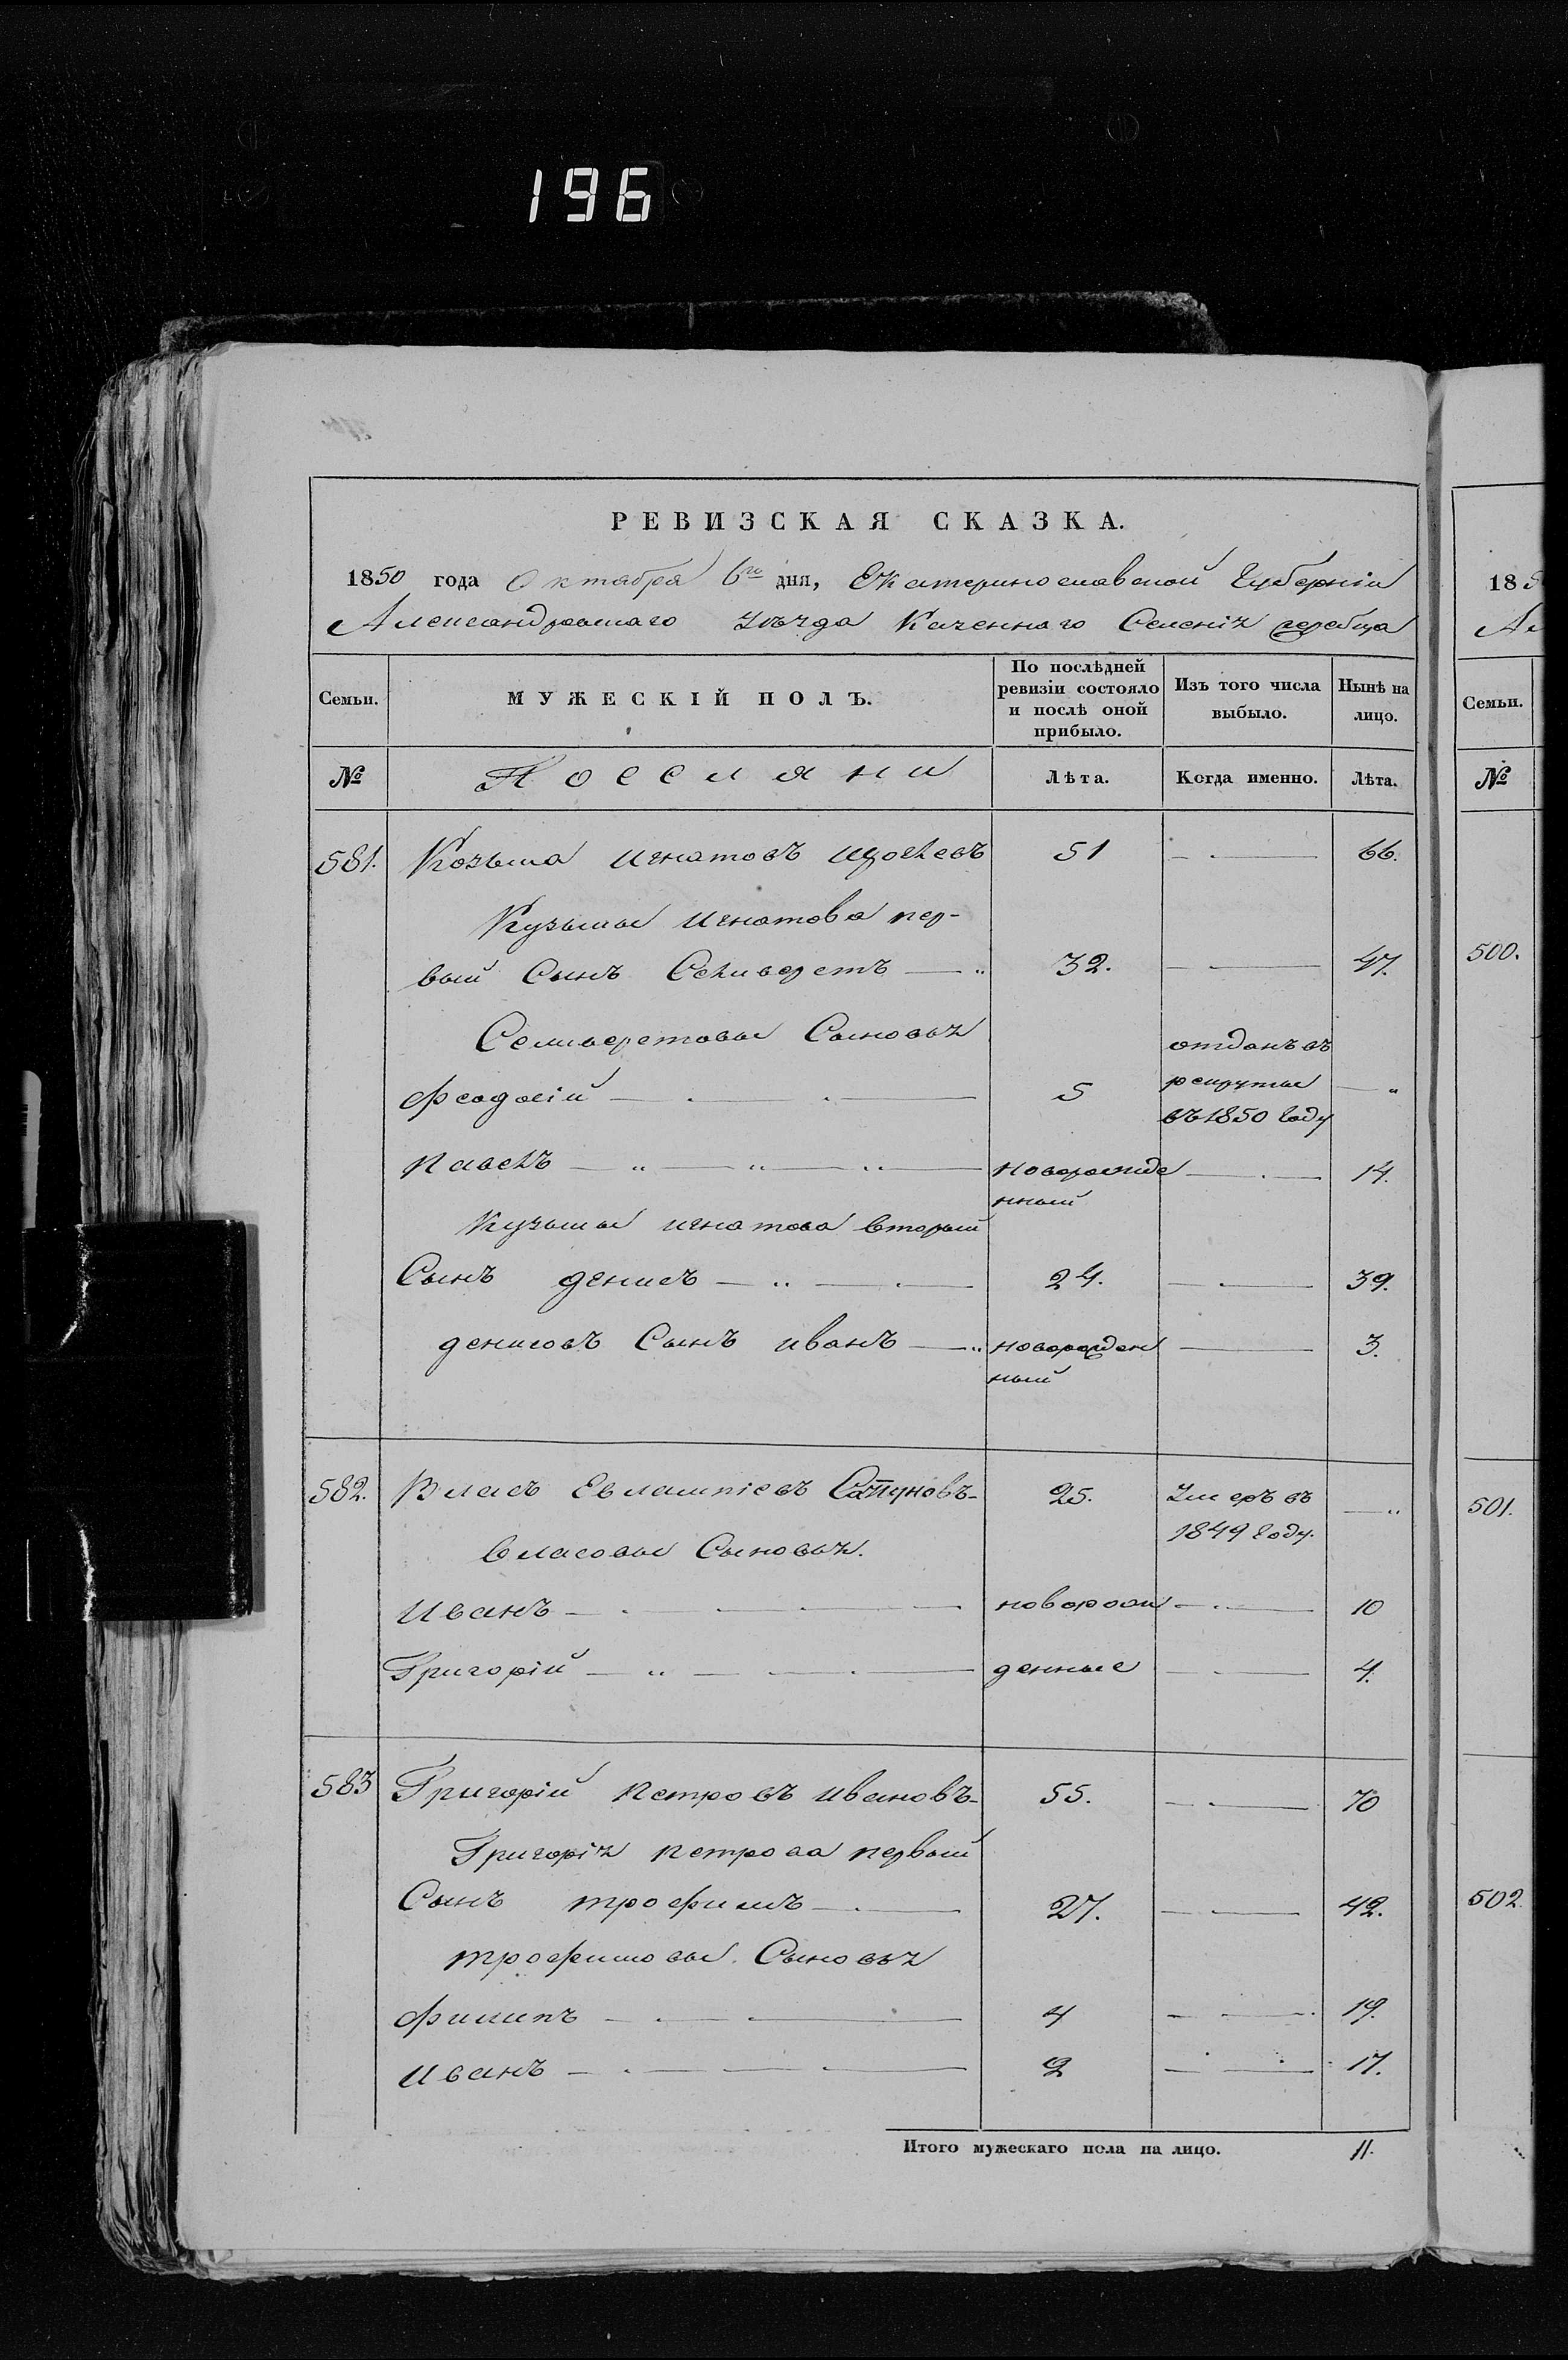 196
РЕВИЗСКАЯ СКАЗКА.
1850 года Октября 6го дня, Екатеринославской Губерніи
Александровскаго Уѣзда Казеннаго Селенія Жеребца
Семьи. МУЖЕСКІЙ ПОЛЪ. По послѣдней ревизіи состояло и послѣ оной прибыло. Изъ того числа выбыло. Нынѣ на лицо.
№ Поселяни Лѣта. Когда именно. Лѣта.
581. Козьма Игнатовъ 51 66.
Кузьмы Игнатова пер-
вый Сынъ Селиверстъ 32. 47.
Селиверстовы Сыновья
Феодосій 5 отданъ въ рекруты въ 1850 году
Павелъ новорожде нный 14.
Кузьмы Игнатова вторый
Сынъ Денисъ 24. 39.
Денисовъ Сынъ Иванъ новорожден ный 3.
582. Власъ Евлампіевъ Сапуновъ 25. Умеръ въ 1849 году.
Власовы Сыновья.
Иванъ новорож 10
Григорій денные 4.
583 Григорій Петровъ Ивановъ 55. 70
Григорія Петрова первый
Сынъ Трофимъ 27. 42.
Трофимовы Сыновья
Филипъ 4 19.
Иванъ 2 17.
Итого мужескаго пола на лицо. 11.
18
Семьи.
№
500.
501.
502.